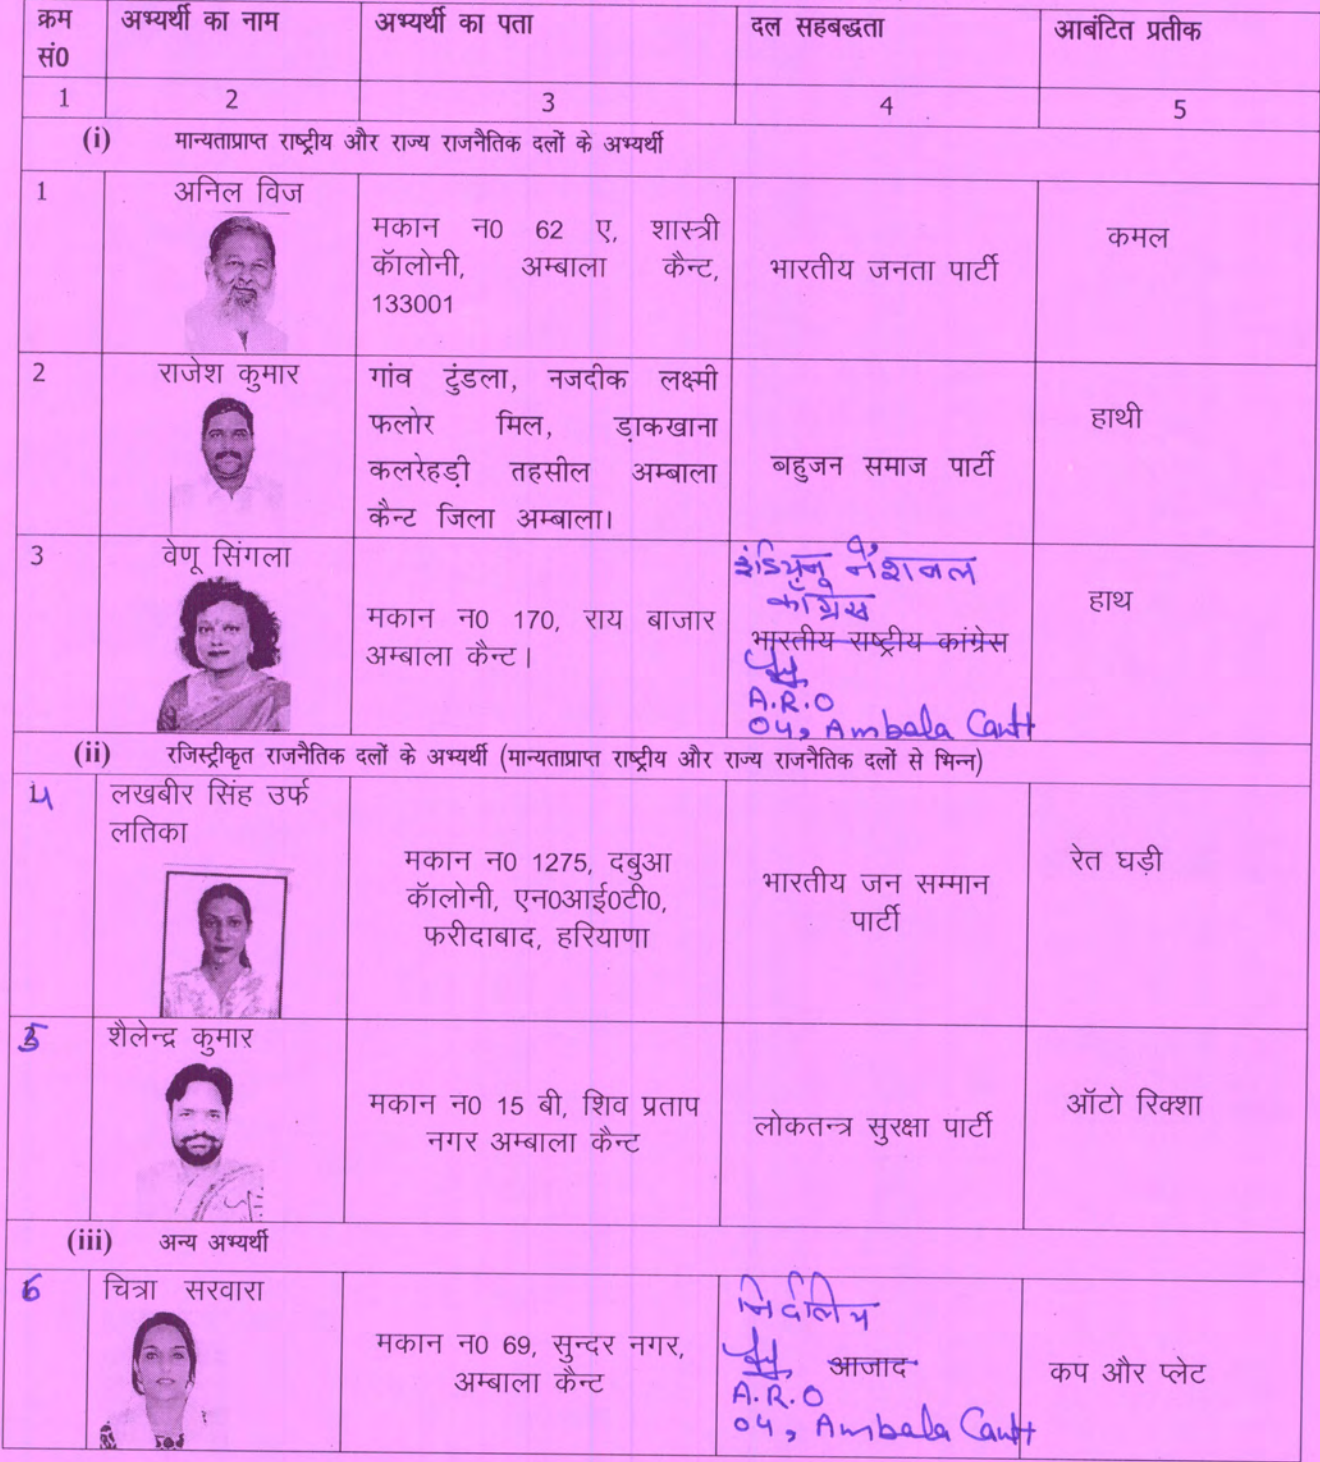 क्रम सं0 अभ्यर्थी का नाम अभ्यर्थी का पता दल सहबद्धता आबंटित प्रतीक
1 2 3 4 5
(i) मान्यताप्राप्त राष्ट्रीय और राज्य राजनैतिक दलों के अभ्यर्थी
1 अनिल विज
मकान न0 62 ए, शास्त्री
कॅालोनी, अम्बाला कैन्ट,
133001
भारतीय जनता पार्टी
कमल
2 राजेश कुमार
गांव टुंडला, नजदीक लक्ष्मी
फलोर मिल, ड़ाकखाना
कलरेहड़ी तहसील अम्बाला
कैन्ट जिला अम्बाला।
बहुजन समाज पार्टी
हाथी
3 वेणू सिंगला
मकान न0 170, राय बाजार
अम्बाला कैन्ट।
इंडियन नेशनल
काँग्रेस
भारतीय राष्ट्रीय कांग्रेस
A.R.O
04, Ambala Cantt
हाथ
(ii) रजिस्ट्रीकृत राजनैतिक दलों के अभ्यर्थी (मान्यताप्राप्त राष्ट्रीय और राज्य राजनैतिक दलों से भिन्न)
4 लखबीर सिंह उर्फ
लतिका
मकान न0 1275, दबुआ
कॅालोनी, एन0आई0टी0,
फरीदाबाद, हरियाणा
भारतीय जन सम्मान
पार्टी
रेत घड़ी
5 शैलेन्द्र कुमार
मकान न0 15 बी, शिव प्रताप
नगर अम्बाला कैन्ट
लोकतन्त्र सुरक्षा पार्टी
ऑटो रिक्शा
(iii) अन्य अभ्यर्थी
6 चित्रा सरवारा
मकान न0 69, सुन्दर नगर,
अम्बाला कैन्ट
निर्दलिय
आजाद
A.R.O
04, Ambala Cantt
कप और प्लेट